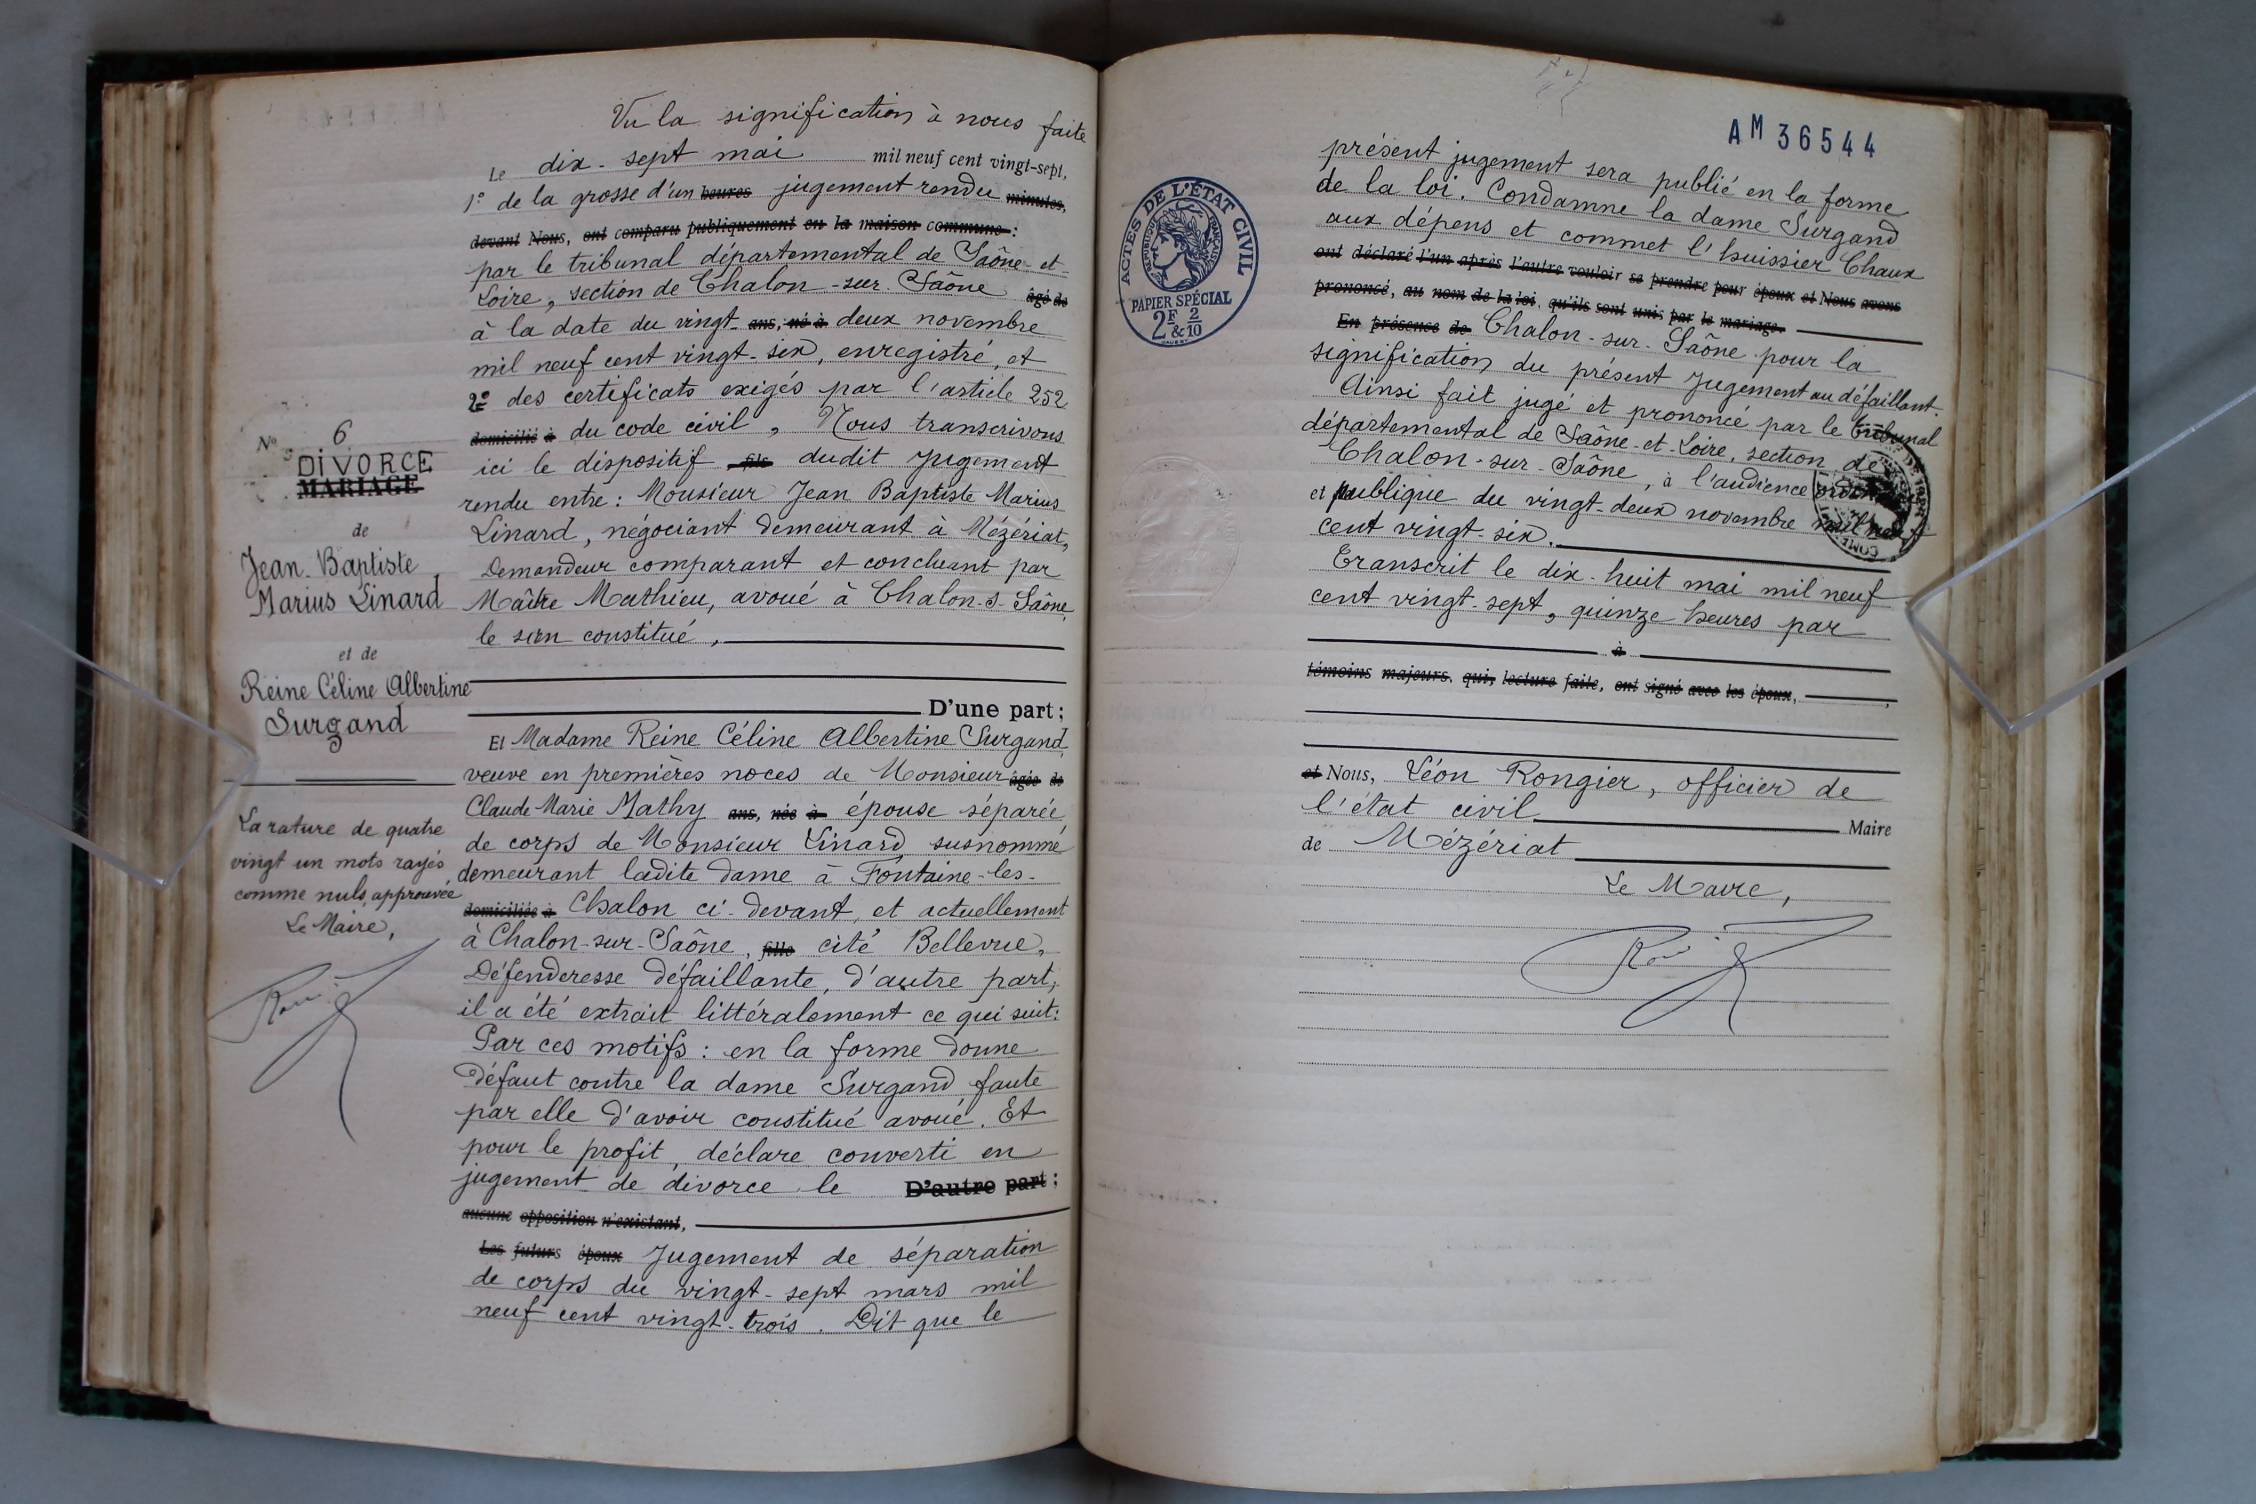 Vu la signification à nous faite
Le dix-sept mai mil neuf cent vingt-sept,
1° de la grosse d'un heures jugement rendu minutes,
devant Nous, ont comparu publiquement en la maison commune :
par le tribunal départemental de Saône-et-
Loire, section de Chalon-sur-Saône âgé de
à la date du vingt- ans, né à deux novembre
mil neuf cent vingt-six, enregistré, et
2° des certificats exigés par l'article 252
domicilié à du code civil, Nous transcrivons
ici le dispositif fils dudit Jugement
rendu entre : Monsieur Jean Baptiste Marius
Linard, négociant demeurant à Mézériat,
Demandeur comparant et concluant par
Maître Mathieu, avoué à Chalon-s-Saône,
le sien constitué,
D'une part ;
Et Madame Reine Céline Albertine Surgand
veuve en premières noces de Monsieur âgée de
Claude Marie Mathy ans, née à épouse séparée
de corps de Monsieur Linard susnommé
demeurant ladite dame à Fontaine-les-
domiciliée à Chalon ci-devant, et actuellement
à Chalon-sur-Saône, fille cité Bellevue,
Défenderesse défaillante, d'autre part,
il a été extrait littéralement ce qui suit :
Par ces motifs : en la forme donne
défaut contre la dame Surgand faute
par elle d'avoir constitué avoué. Et
pour le profit, déclare converti en
jugement de divorce le D'autre part ;
aucune opposition n'existant,
Les futurs époux Jugement de séparation
de corps du vingt-sept mars mil
neuf cent vingt-trois. Dit que le
N° 6
DIVORCE
MARIAGE
de
Jean-Baptiste
Marius Linard
et de
Reine Céline Albertine
Surgand
La rature de quatre
vingt un mots rayés
comme nuls, approuvée
Le Maire,
AM 36544
ACTES DE L'ÉTAT CIVIL
RÉPUBLIQUE FRANÇAISE
PAPIER SPÉCIAL
2F & 2/10
présent jugement sera publié en la forme
de la loi. Condamne la dame Surgand
aux dépens et commet l'huissier Chaux
ont déclaré l'un après l'autre vouloir se prendre pour époux et Nous avons
prononcé, au nom de la loi, qu'ils sont unis par le mariage.
En présence de Chalon-sur-Saône pour la
signification du présent Jugement au défaillant.
Ainsi fait jugé et prononcé par le tribunal
départemental de Saône-et-Loire, section de
Chalon-sur-Saône, à l'audience
et publique du vingt-deux novembre mil neuf
cent vingt-six.
Transcrit le dix-huit mai mil neuf
cent vingt-sept, quinze heures par
à
témoins majeurs, qui, lecture faite, ont signé avec les époux,
et Nous, Léon Rongier, officier de
l'état civil Maire
de Mézériat
Le Maire,